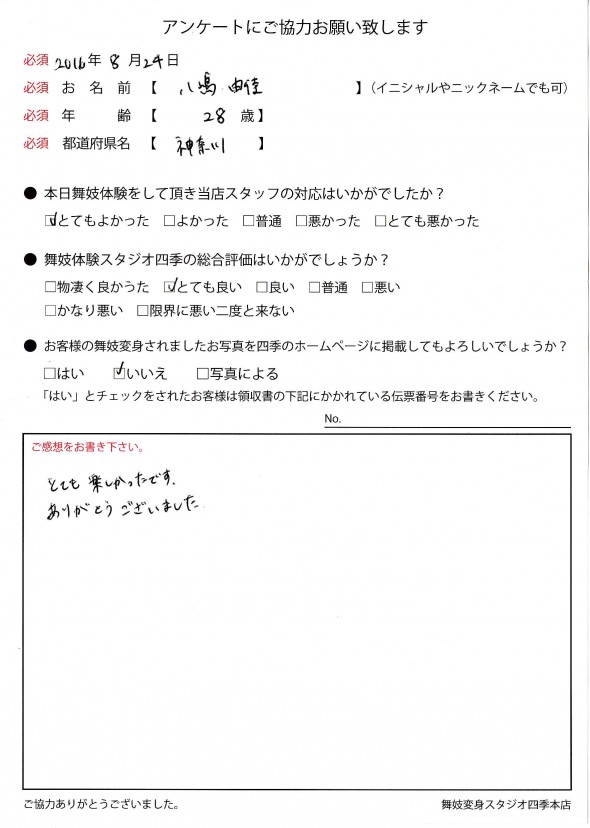 アンケートにご協力お願い致します
必須 2016年 8月24日
必須 お名前 【 八嶋 由佳 】(イニシャルやニックネームでも可)
必須 年齢 【 28歳】
必須 都道府県名 【 神奈川 】
● 本日舞妓体験をして頂き当店スタッフの対応はいかがでしたか?
☑とてもよかった □よかった □普通 □悪かった □とても悪かった
● 舞妓体験スタジオ四季の総合評価はいかがでしょうか?
□物凄く良かうた ☑とても良い □良い □普通 □悪い
□かなり悪い □限界に悪い二度と来ない
● お客様の舞妓変身されましたお写真を四季のホームページに掲載してもよろしいでしょうか?
□はい ☑いいえ □写真による
「はい」とチェックをされたお客様は領収書の下記にかかれている伝票番号をお書きください。
No.
ご感想をお書き下さい。
とても楽しかったです.
ありがとうございました.
ご協力ありがとうございました。
舞妓変身スタジオ四季本店